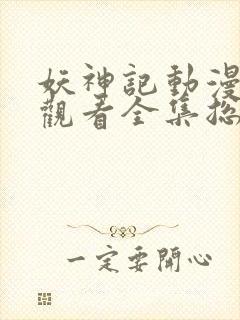 妖神記動漫
觀看全集總
一定要開心